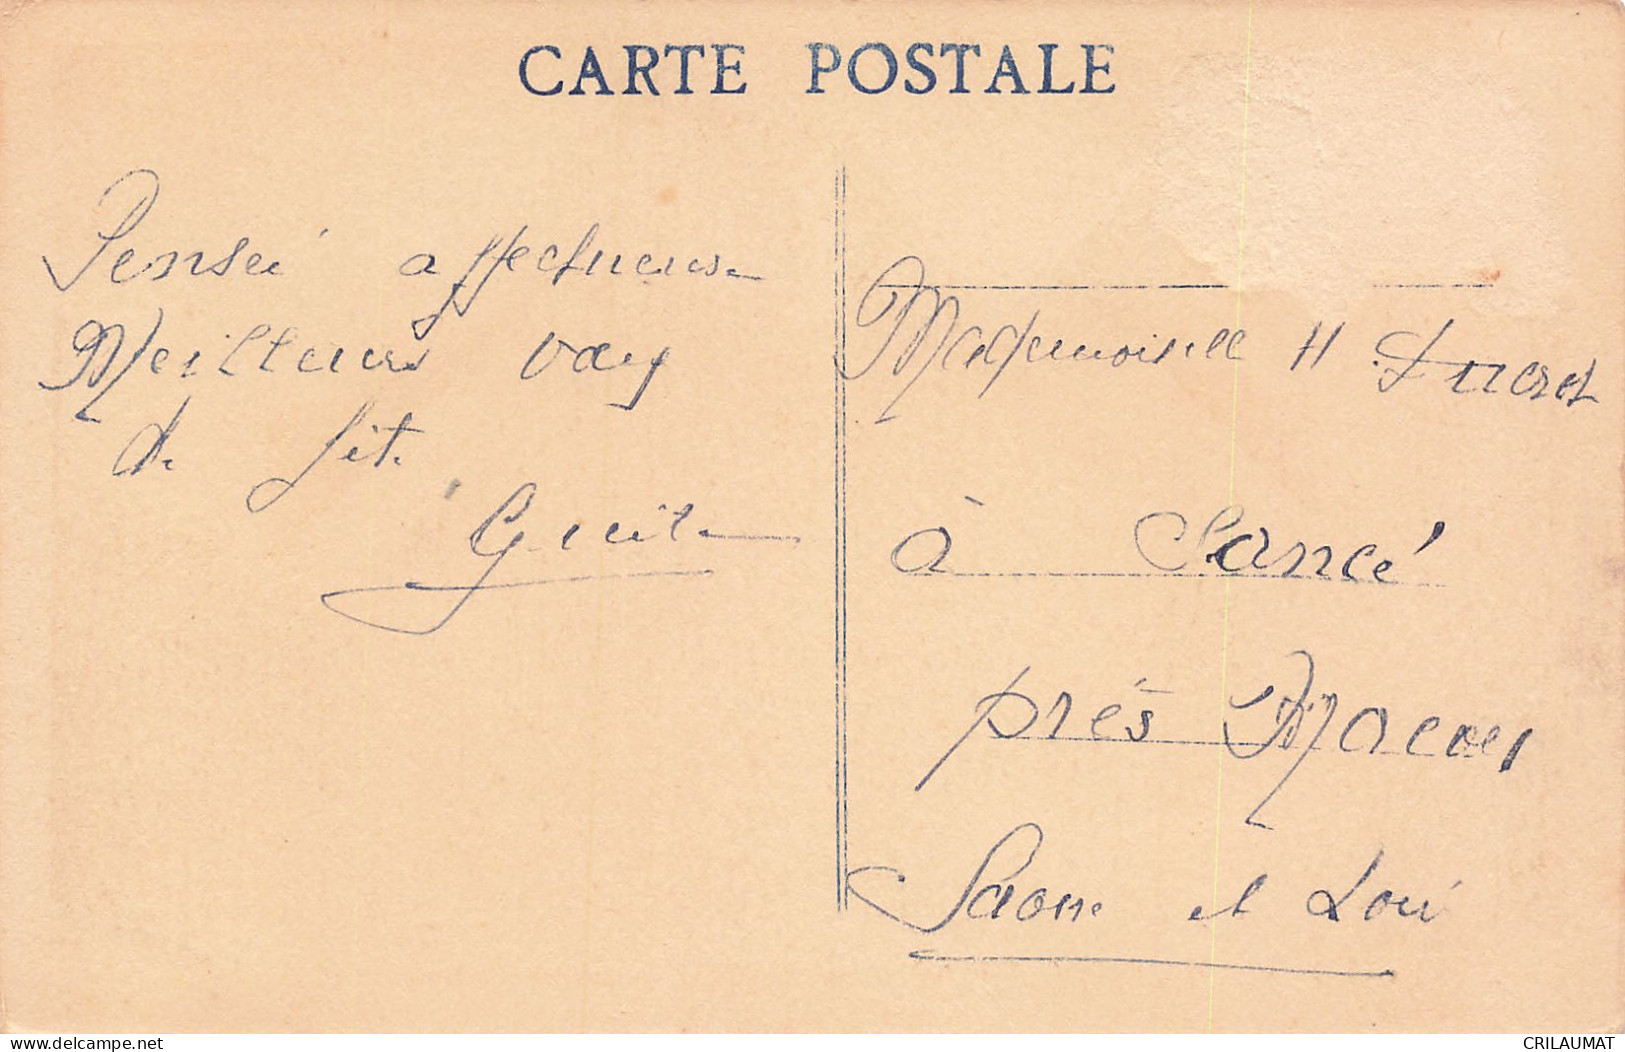 CARTE POSTALE
Pensé affectueuse
Meilleurs
de fête
Mademoiselle H. Ducrot
à Sancé
près Macon
Saone et Loir
www.delcampe.net
CRILAUMAT